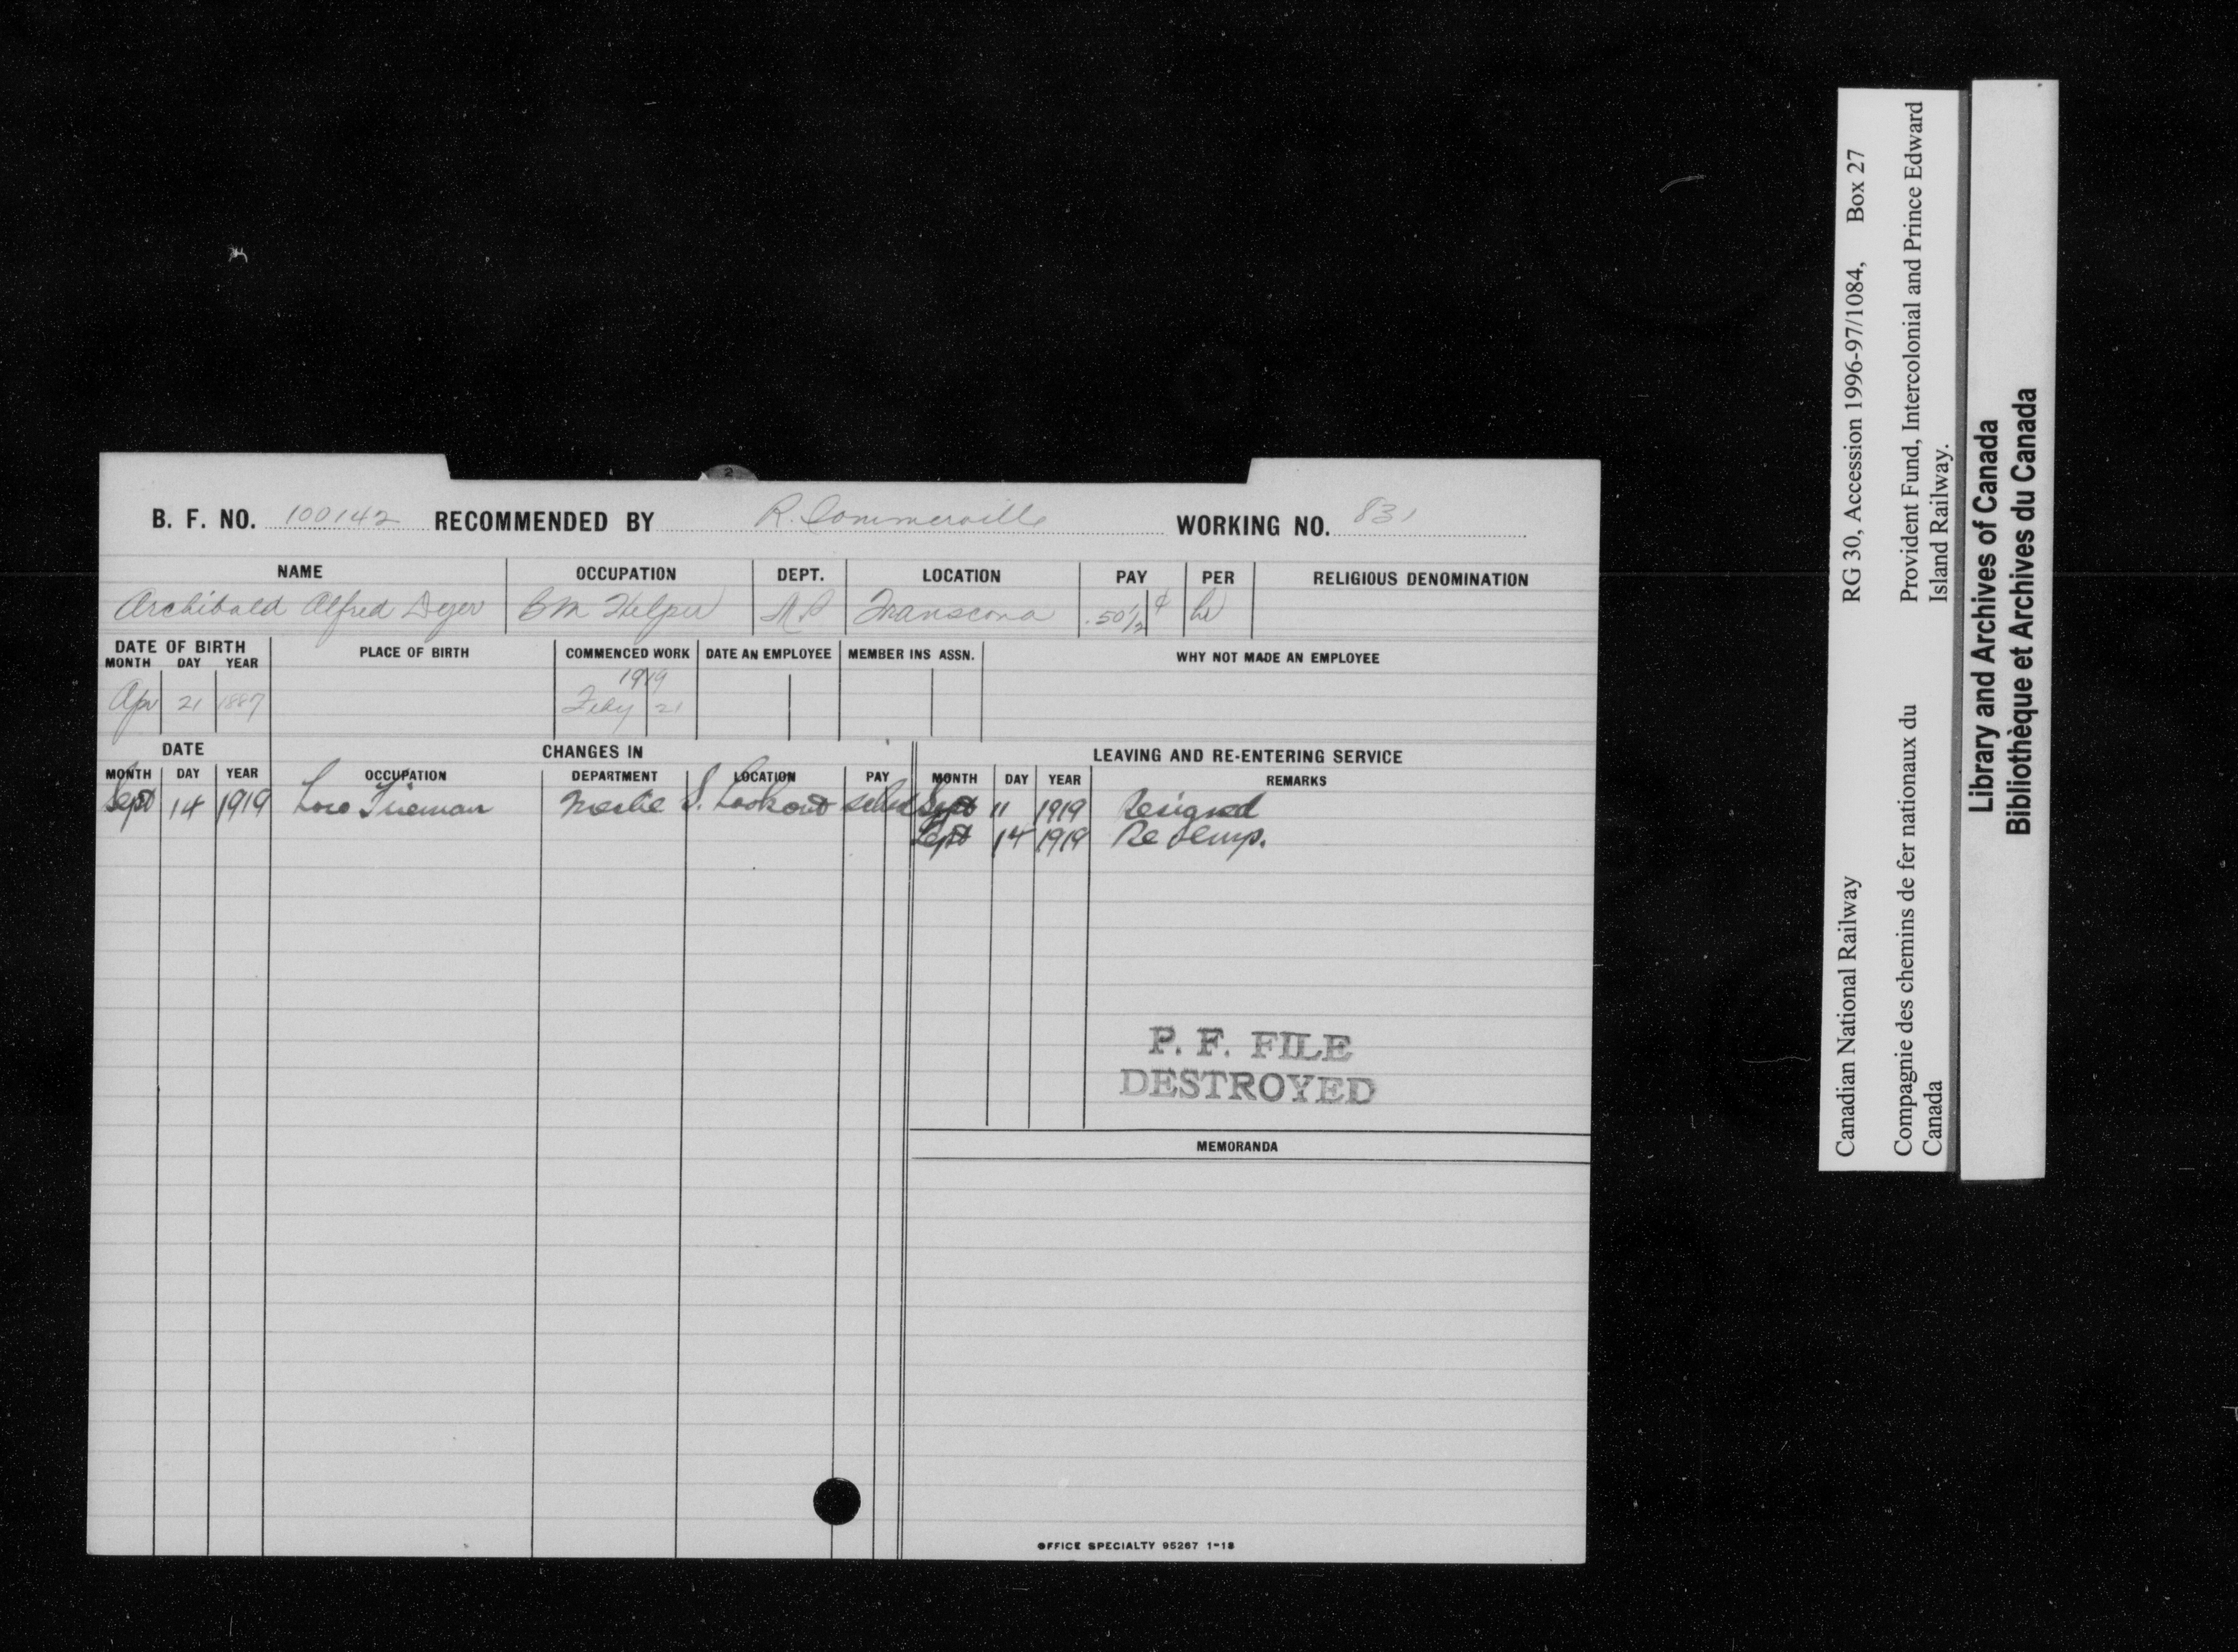 B. F. NO. 100142 RECOMMENDED BY R. Sommerville WORKING NO. 831
NAME OCCUPATION DEPT. LOCATION PAY PER RELIGIOUS DENOMINATION
Archibald Alfred Dyer BM Helper M.P Transcona .50½ ¢ hr
DATE OF BIRTH PLACE OF BIRTH COMMENCED WORK DATE AN EMPLOYEE MEMBER INS ASSN. WHY NOT MADE AN EMPLOYEE
MONTH DAY YEAR
1919
Apr 21 1887 Feby 21
DATE CHANGES IN LEAVING AND RE-ENTERING SERVICE
MONTH DAY YEAR OCCUPATION DEPARTMENT LOCATION PAY MONTH DAY YEAR REMARKS
Sept 14 1919 Loco Fireman S. Lookout sched Sept 11 1919 Resigned
Sept 14 1919 Re emp.
P. F. FILE
DESTROYED
MEMORANDA
OFFICE SPECIALTY 95267 1-18
Canadian National Railway RG 30, Accession 1996-97/1084, Box 27
Compagnie des chemins de fer nationaux du
Canada
Provident Fund, Intercolonial and Prince Edward
Island Railway.
Library and Archives of Canada
Bibliothèque et Archives du Canada